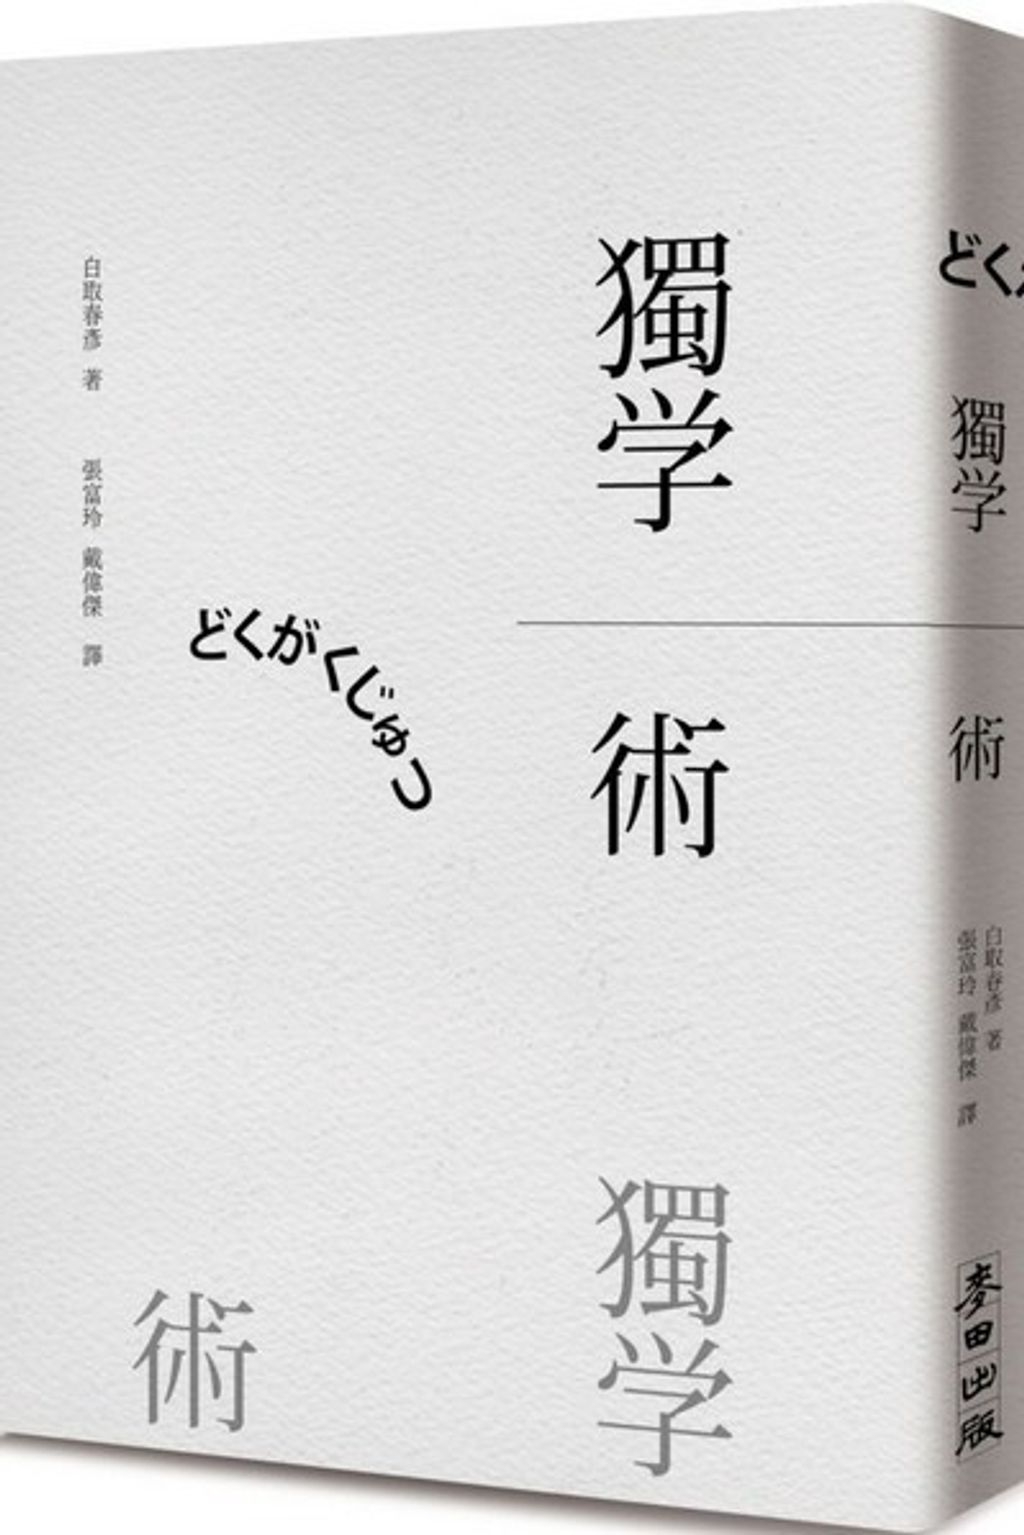 獨学
術
どくがくじゅつ
白取春彥 著
張富玲 戴偉傑 譯
獨学
術
どくが
獨学
術
白取春彥 著
張富玲 戴偉傑 譯
麥田出版